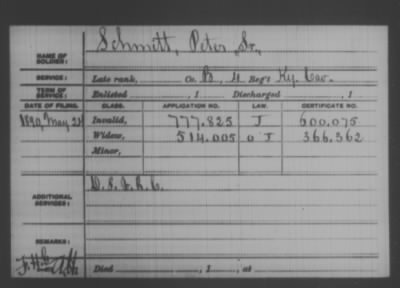 NAME OF SOLDIER: Schmitt, Peter Sr.
SERVICE: Late rank, Co. B, 4 Reg't Ky. Cav.
TERM OF SERVICE: Enlisted , 1 Discharged , 1
DATE OF FILING. CLASS. APPLICATION NO. LAW. CERTIFICATE NO.
1890, May 21 Invalid, 777.825 J 600.075
Widow, 514.005 O J 366.362
Minor,
ADDITIONAL SERVICES:
REMARKS:
Died , 1 , at